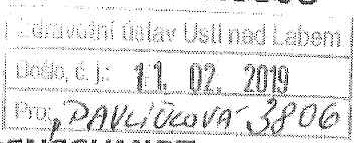 Zdravotní ústav Ústí nad Labem
Došlo, č. j.: 11. 02. 2019
Pro: PAVLÍČKOVÁ 3806